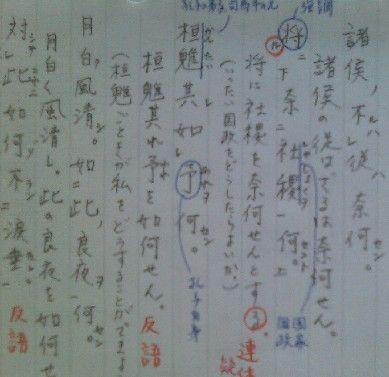 諸侯、不ルハレ従ハ奈何セン。
諸侯の従はざるは奈何せん。
強調
将ニ下奈ニ社稷一何上セント
国家
国政
将に社稷を奈何せんとする。 連体
(いったい国政をどうしたらよいか。) 疑
桓魋其レ如レ予ヲ何セン。
孔子自身
桓魋其れ予を如何せん。 反語
(桓魋ごときが私をどうすることができま
月白ク風清シ。如ニ此ノ良夜一何セン。
月白く風清し。此の良夜を如何せ
対シテレ此ニ如何ゾ不ランニ涙垂一 反語